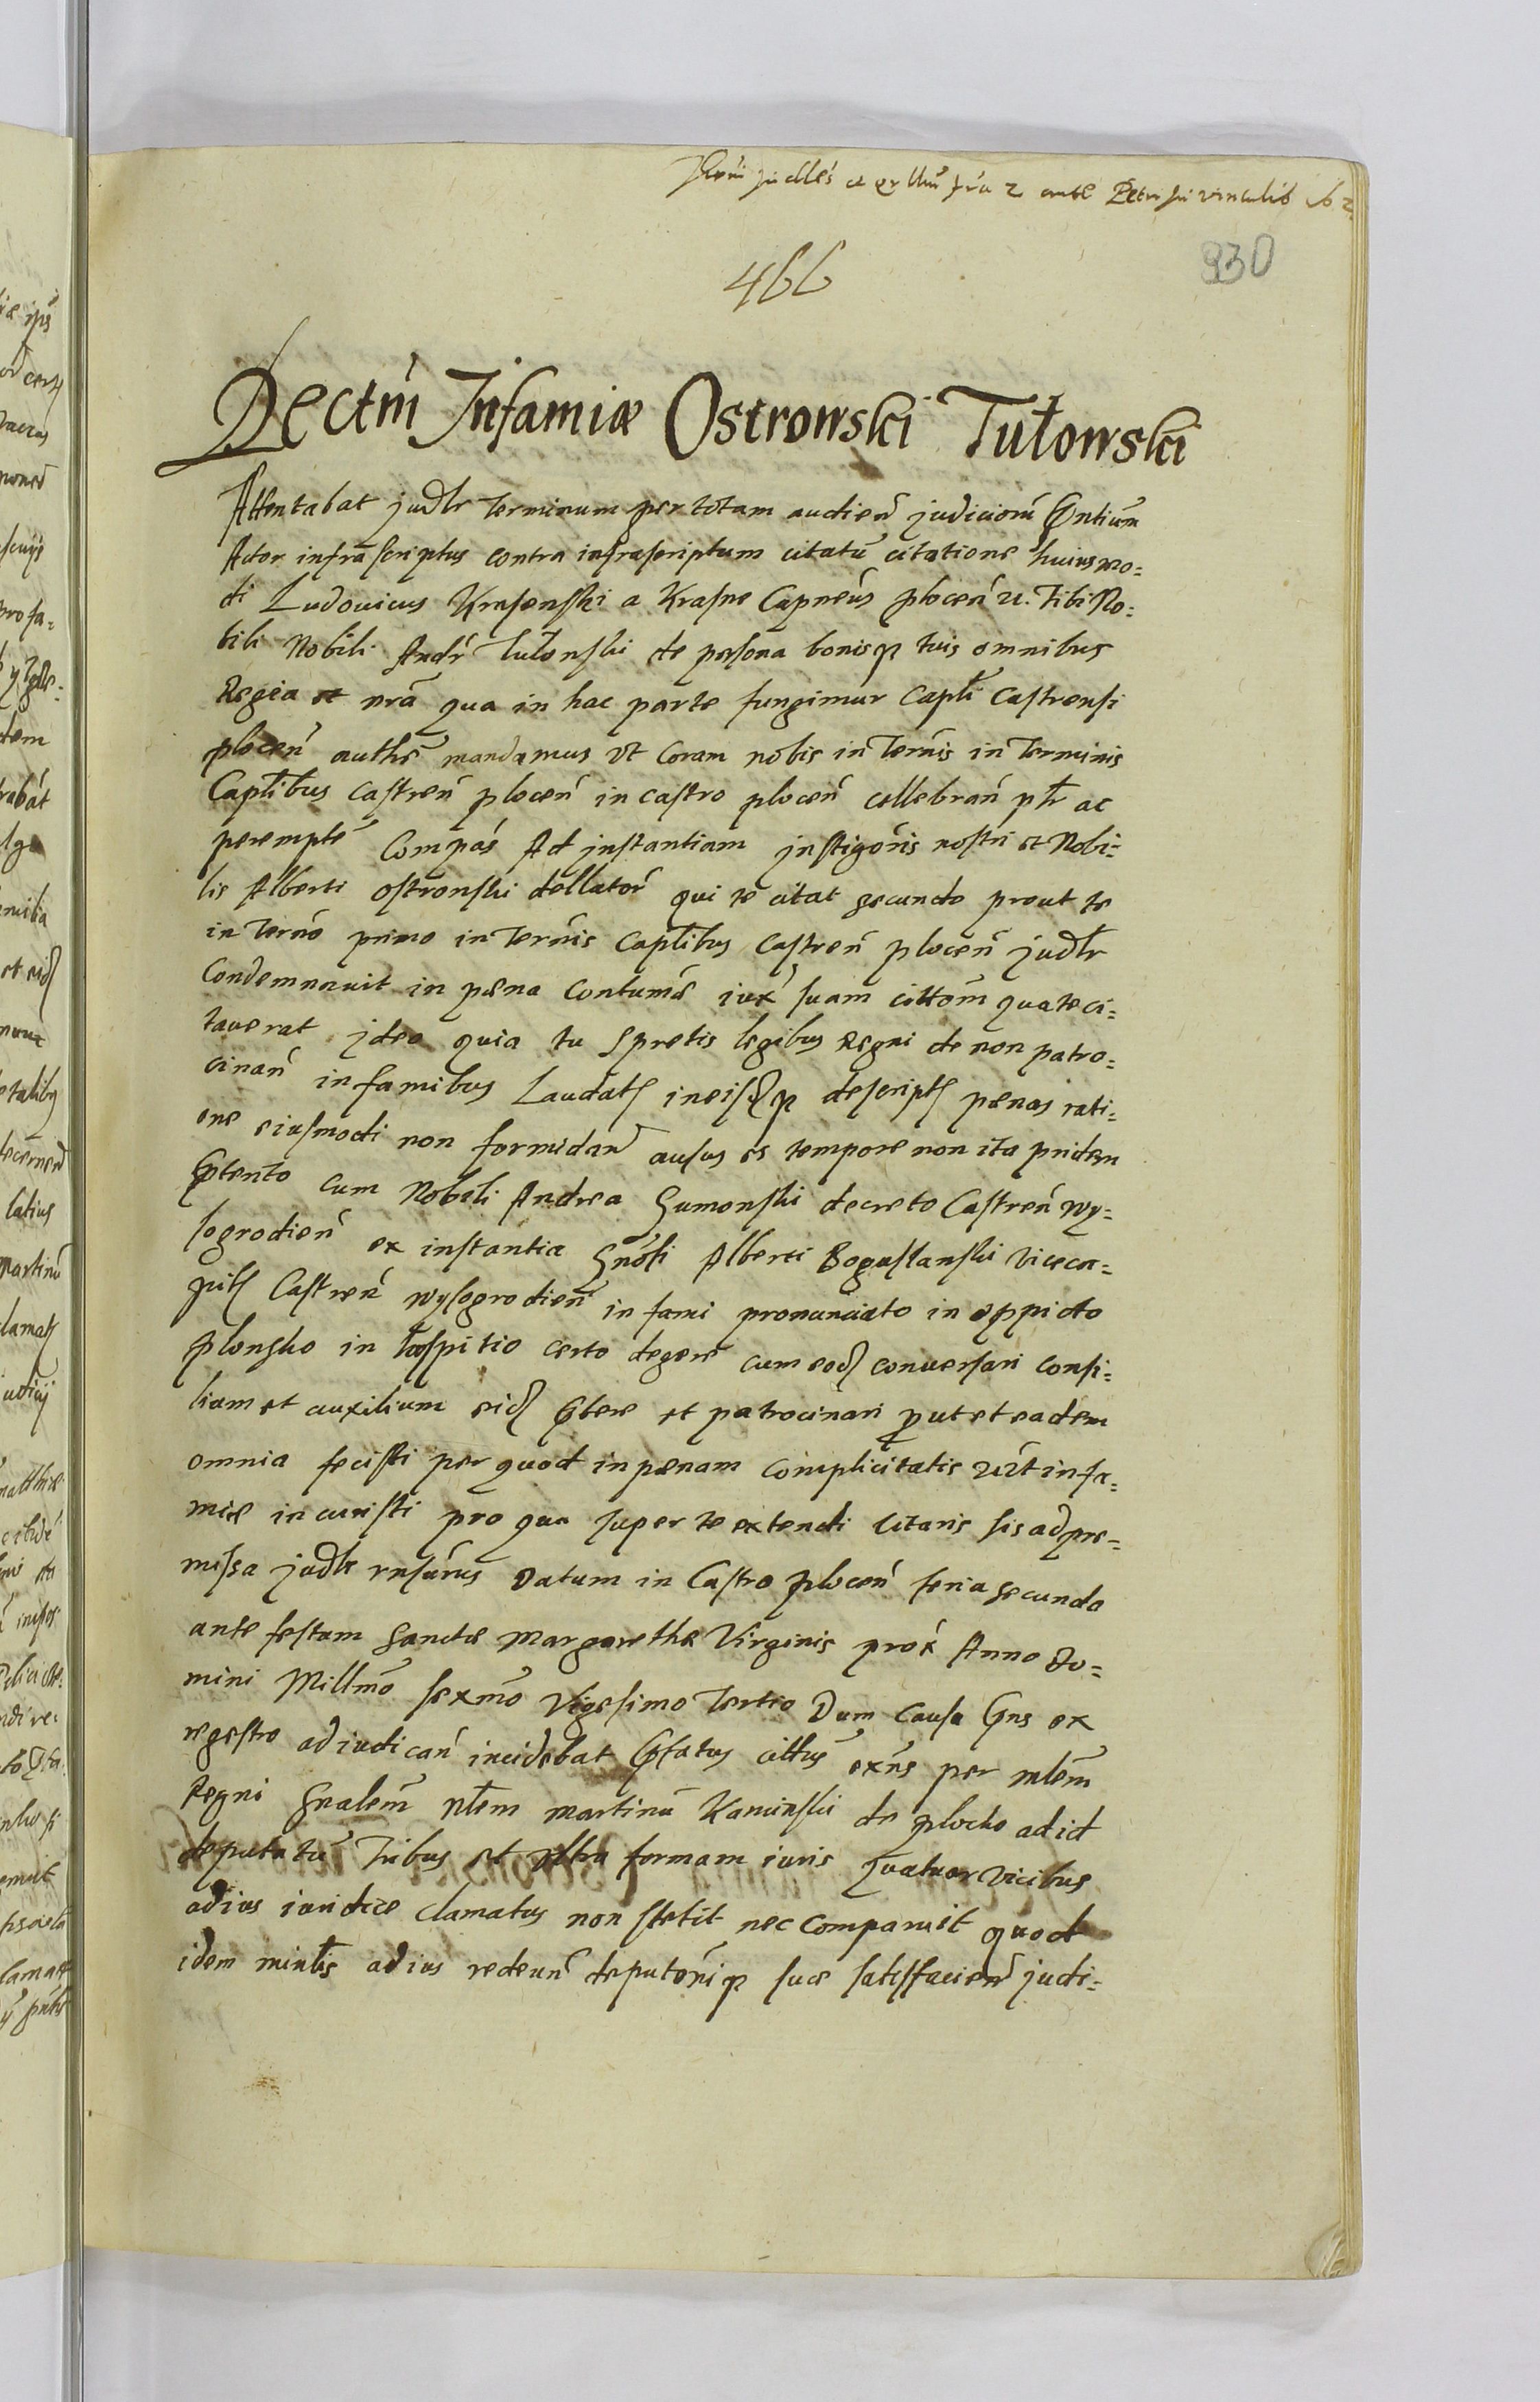 ante Petri in vinculis
466
930
Dectm Infamiæ Ostrowski Tułowski
Attentabat judlr Terminum per totam audien judiciorũ Pntium
Actor infrascriptus contra infrascriptum citatũ citatione huiusmo=
di Ludovicus Krasenski a Krasne Capneus plocen etc. Tibi No=
bili Nobili Andr Tułonski de persona bonisq tuis omnibus
Regia et nrã qua in hac parte fungimur Caplí Castrensi
plocen authe mandamus vt Coram nobis in Ternis in Terminis
Caplibus castren plocen in castro plocen cellebran ptr ac
perempte Compás Ad jnstantiam jnstigoris nostri et Nobi=
lis Alberti ostronski dellator qui te citat secundo prout te
in Terno primo in Ternis Caplibus Castren plocen judlr
Condemnauit in pæna Contumæ iux suam cittom qua te ci=
tauerat jdeo quia tu spretis legibus Regni de non patro=
cinan infamibus Laudat ineisdq descript pænas rati=
one eiusmodi non formidan ausus es tempore non ita pridem
Ptento cum Nobili Andrea Gumonski decreto Castren Wy=
sogrodien ex instantia Gnosi Alberti Boguslanski viceca=
pit Castren wysogrodien infami pronunciato in oppido
plonsko in hospitio certo degere cum eod conuersari consi=
lium et auxilium eid Pbere et patrocinari put et eadem
omnia fecisti per quod in pænam complicitatis infa=
miæ incurristi pro qua super te extendi citaris sis ad pre=
missa judlr rnsurus Datum in Castro plocen feria secunda
ante festum Sanctæ Margarethæ Virginis prox Anno Do=
mini Millmo sexmo Vigesimo Tertio Dum Causa Pns ex
regestro adiudican incidebat Pfatus cittus exns per mlem
Regni Gnalem nlem martinũ Kaminski de plocko ad id
deputatũ Tribus et vltra formam iuris quatuor vicibus
ad ius iuridice clamatus non stetit nec comparuit quod
idem minlis ad ius redeun deputoniq suæ satisfacien judi=